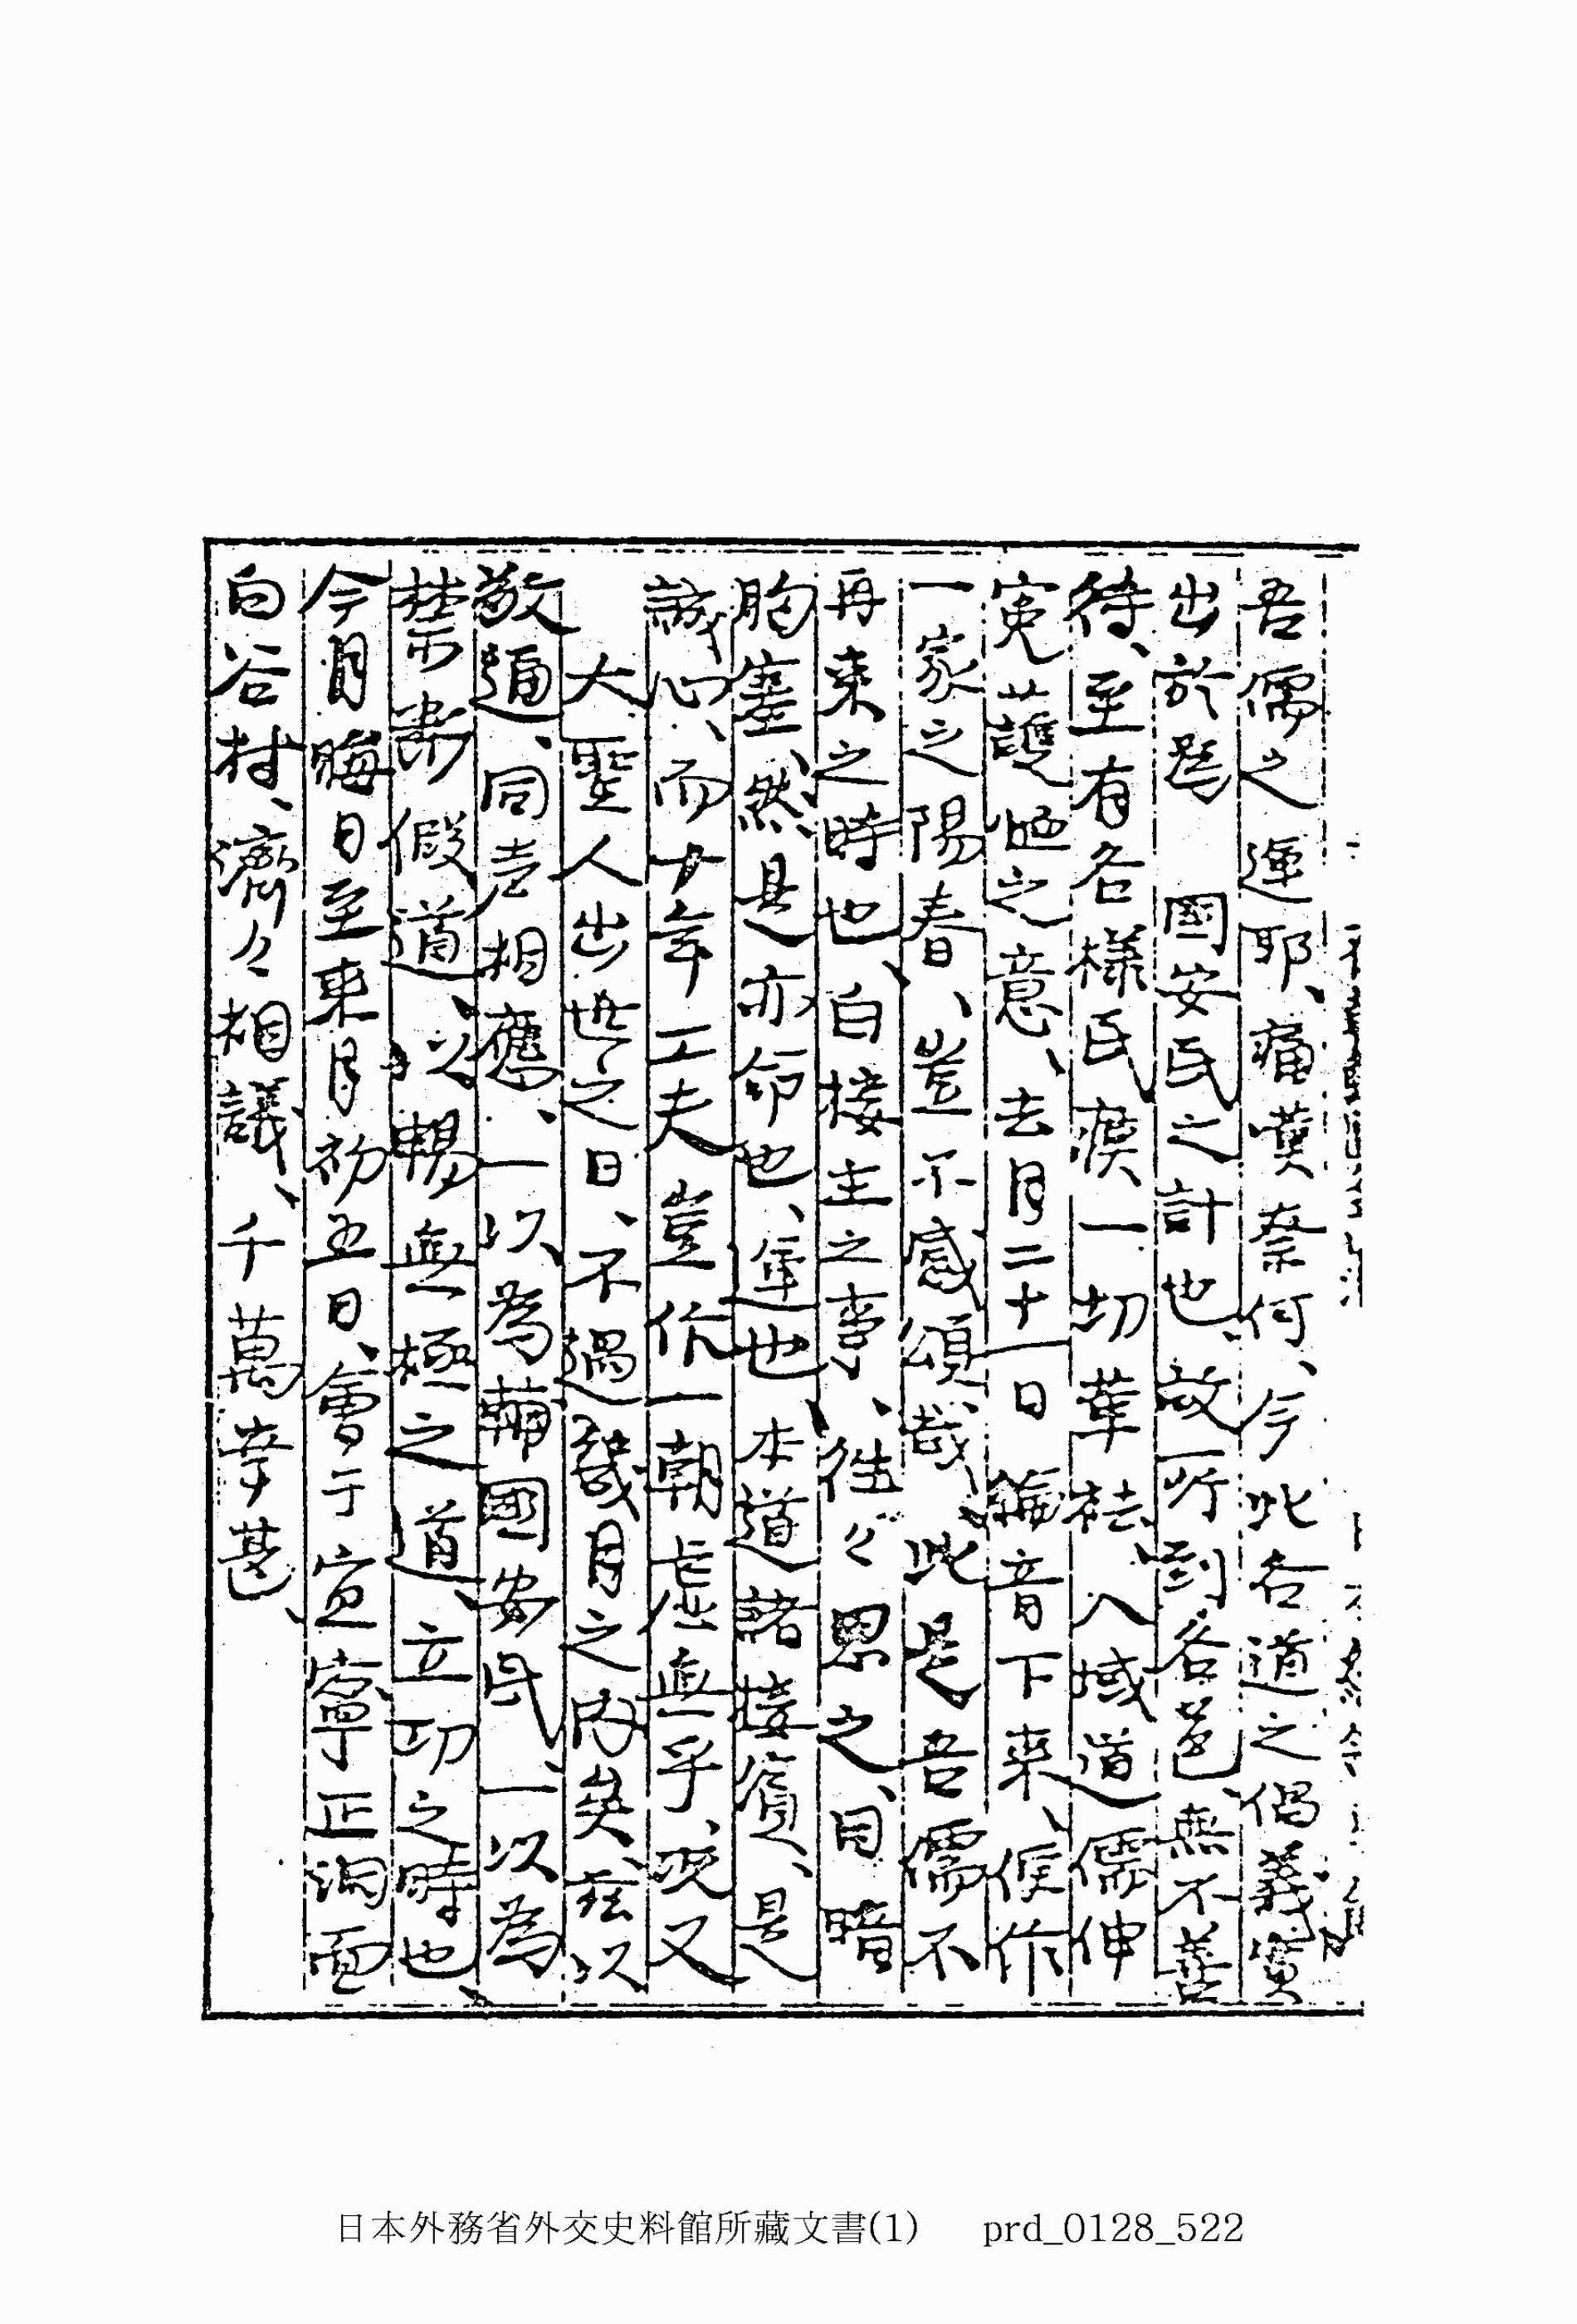 吾儒之運耶、痛嘆奈何、今此右道之倡義實
出於爲　國安民之計也、故所到各邑、無不善
待、至有各樣民瘼一切革祛、入域道儒伸
寃護恤之意、去月二十一日　綸音下來、便作
一家之陽春、豈不感頌哉、此是吾儒不
再來之時也、自接主之事、徃々思之、目暗
胸塞、然是亦命也、運也　本道諸接賓、是
誠心、而十年工夫豈作一朝虛無乎、况又
大聖人出世之日、不過幾月之內矣、玆以
敬通、同志相應、一以爲輔國安民、一以爲
禁斷假道、以暢無極之道、立功之時也、
今月晦日至來月初五日、會于宜寧正洞面
白谷村、濟々相議、千萬幸甚、
日本外務省外交史料館所藏文書(1)　prd_0128_522